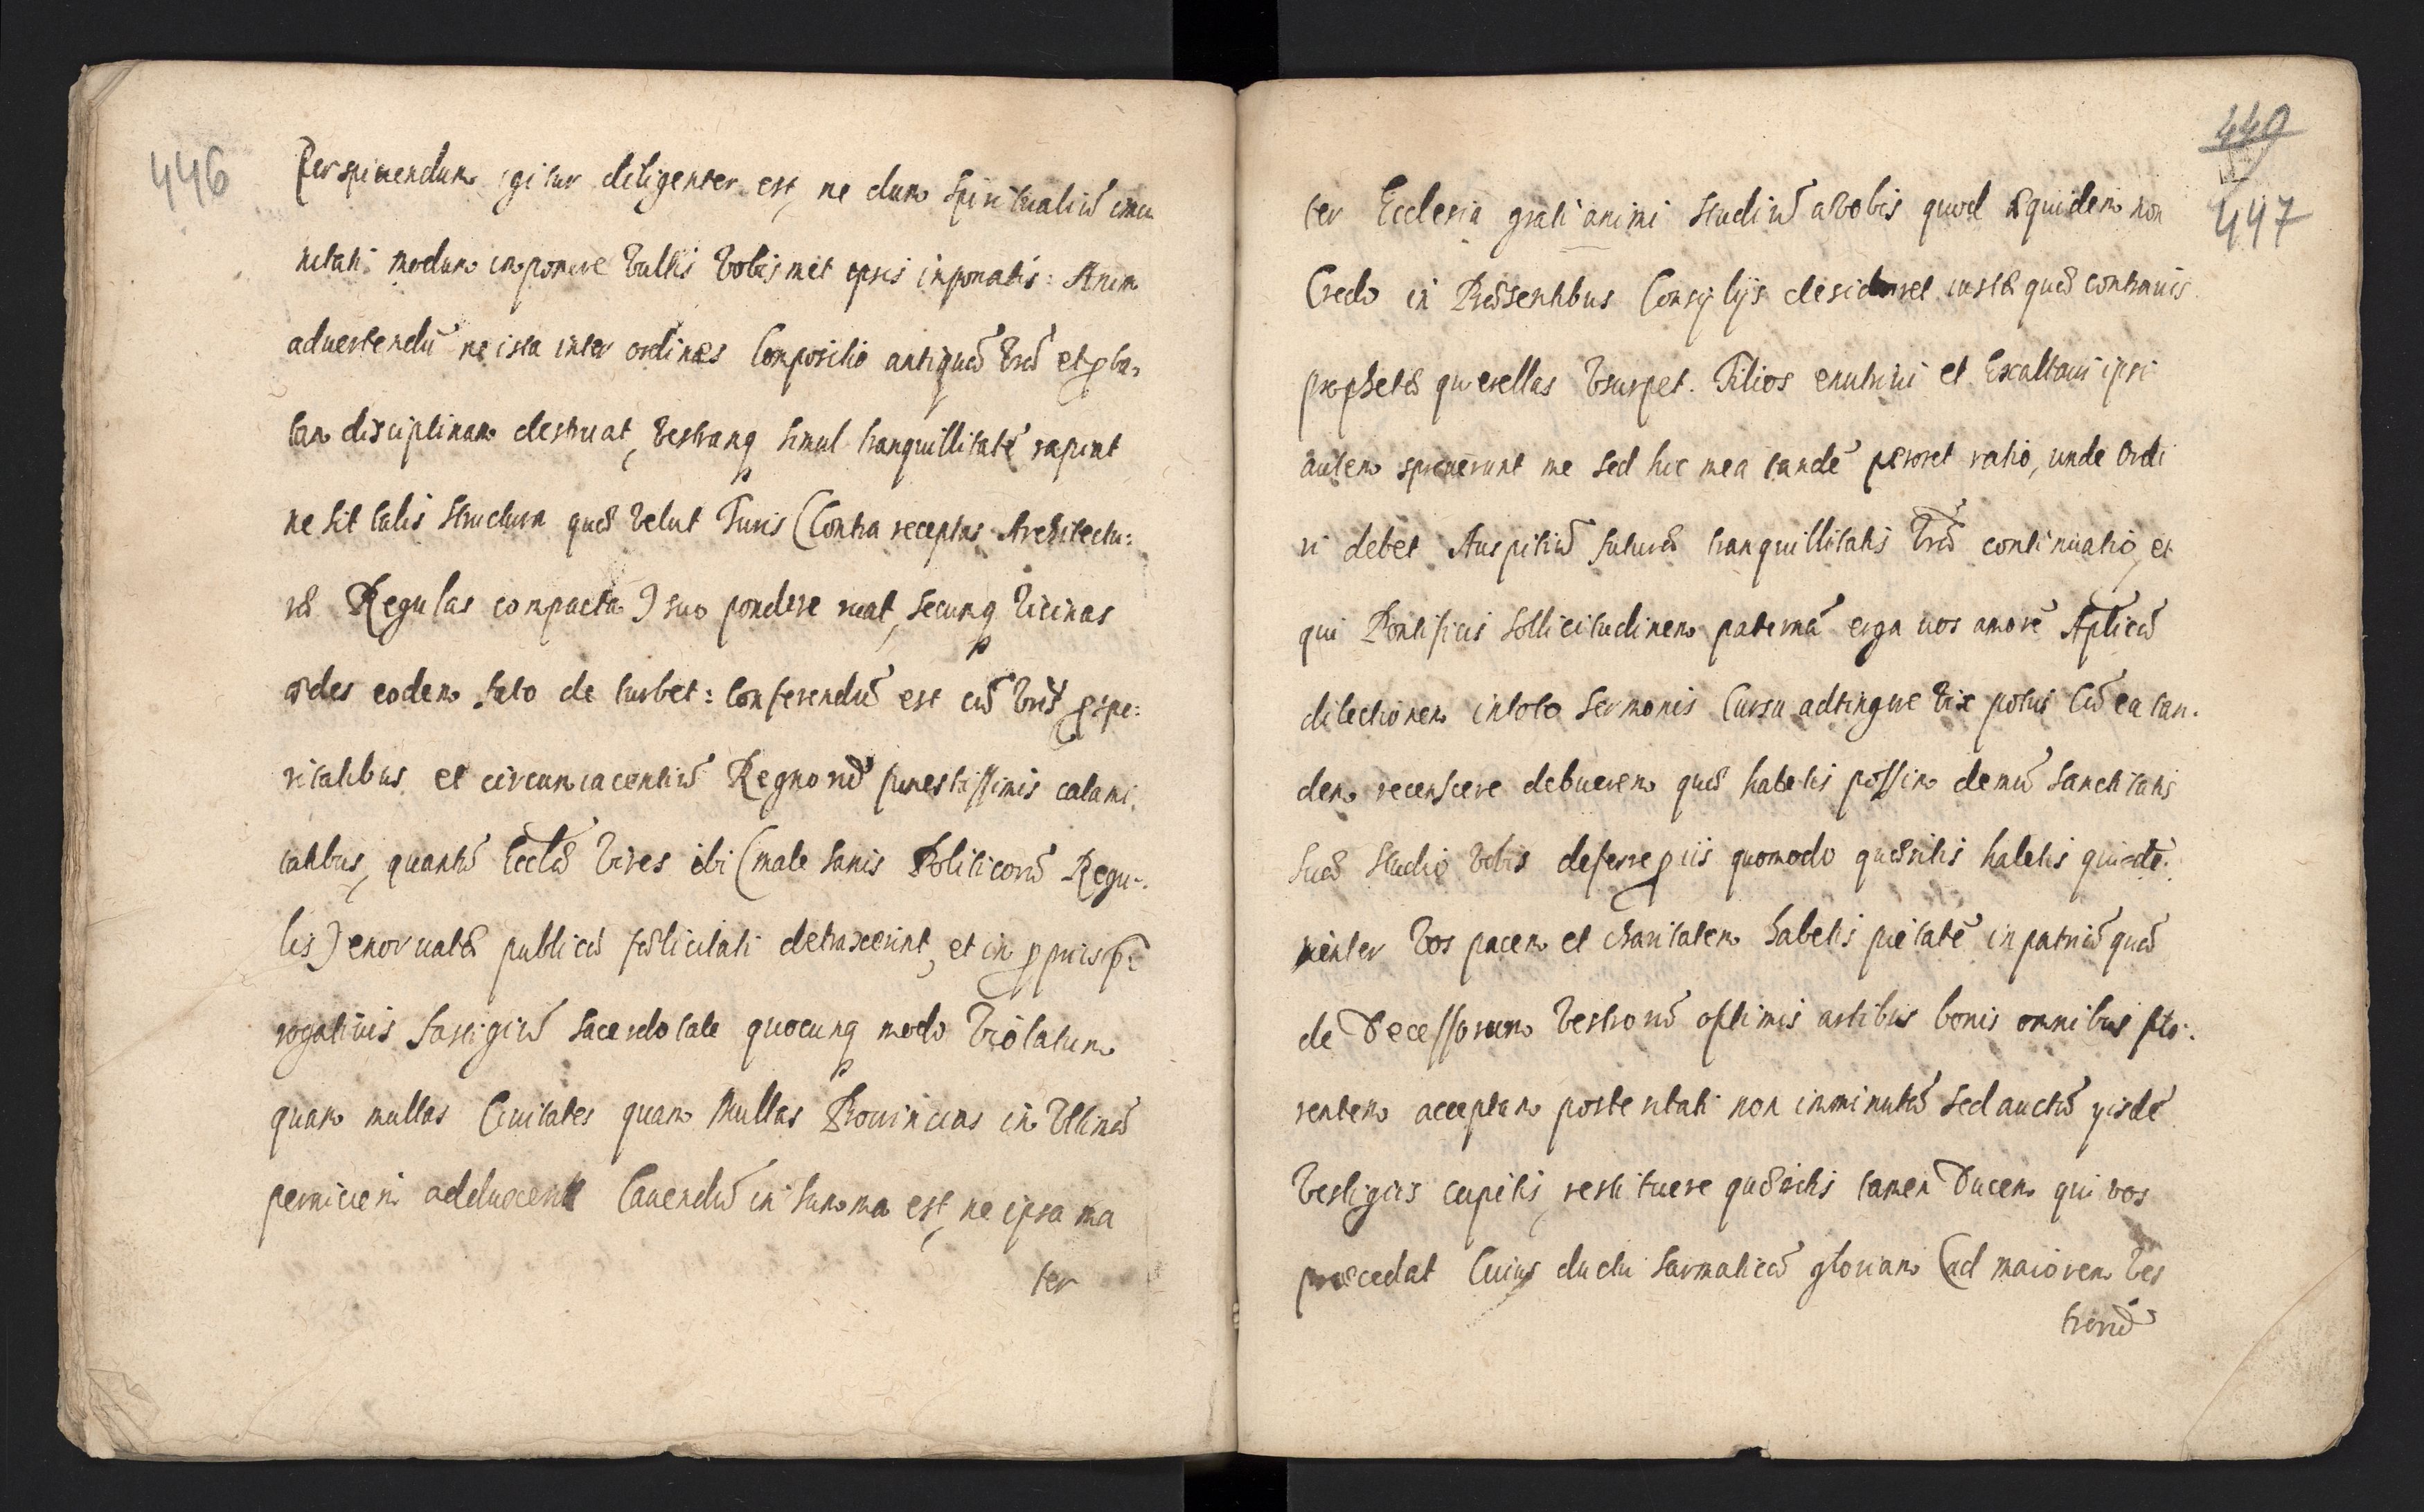 446
Perspiciendum igitur diligenter est, ne dum spiritualiũ imu
nitati modum imponere vultis vobismet ipsis imponatis: Anim
advertendũ ne ista inter ordines Compositio antiquã vrã et ꝓba-
tam disciplinam destruat, vestramq simul tranquillitatẽ rapiat
ne sit talis structura quæ velut Turis (Contra receptas Architectu:
ræ Regulas compacta) suo pondere ruat, secumq vicinas
ædes eodem fato de turbet: Conferendũ est cũ vris ꝓspe:
ritatibus et circumiacentiũ Regnorũ funestissimis calami
tatibus, quantũ Eccliæ vires ibi (male sanis Politicorũ Regu-
lis) enervatæ publicæ fælicitati detraxerint, et in ꝓprijs p̃
rogativis fastigiũ sacerdotale quocunq modo violatum
quam multas Civitates quam Multas Provincias in Vltimã
perniciem adduxerit Cavendũ in summa est, ne ipsa ma
ter
440
447
ter Ecclesia grati animi studiũ a vobis quod æquidem non
Credo in Præsentibus Consylijs desideret iustæ quæ contravis
prophetæ querellas vsurpet. Filios enutrivi et Exaltavi ipsi
autem spreuerunt me sed hic mea tandẽ peroret ratio, unde Ordi
ri debet Auspitiũ futuræ tranquillitatis vræ continuatio, et
qui Pontificis sollicitudinem paternã erga vos amorẽ Aplicã
dilectionem in toto sermonis Cursu adtingere vix potui Cũ ea tan-
dem recensere debuerem quæ habetis possim demũ sanctitatis
suæ studio vobis deferre ꝓ iis quomodo quæsitis habetis quidẽ
inter vos pacem et charitatem habetis pietatẽ in patriã quã
de Decessorum vestrorũ optimis artibus bonis omnibus flo:
rentem acceptam posteritati non imminutã sed auctã yisdẽ
vestigiis cupitis, restituere quæritis tamen Ducem qui vos
præcedat Cuius ductu sarmaticã gloriam (ad maiorem ves
trorũ